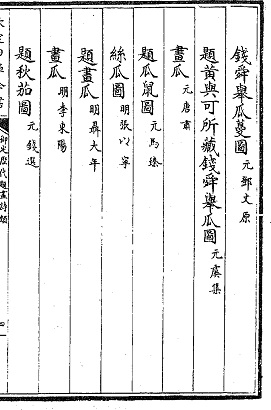 錢舜舉瓜蔓圖 元鄧文原
題黄與可所藏錢舜舉瓜圖 元虞集
畫瓜 元唐肅
題瓜鼠圖 元馬臻
絲瓜圖 明張以寧
題畫瓜 明聶大年
畫瓜 明李東陽
題秋茄圖 元錢選
御定歴代題畫詩類